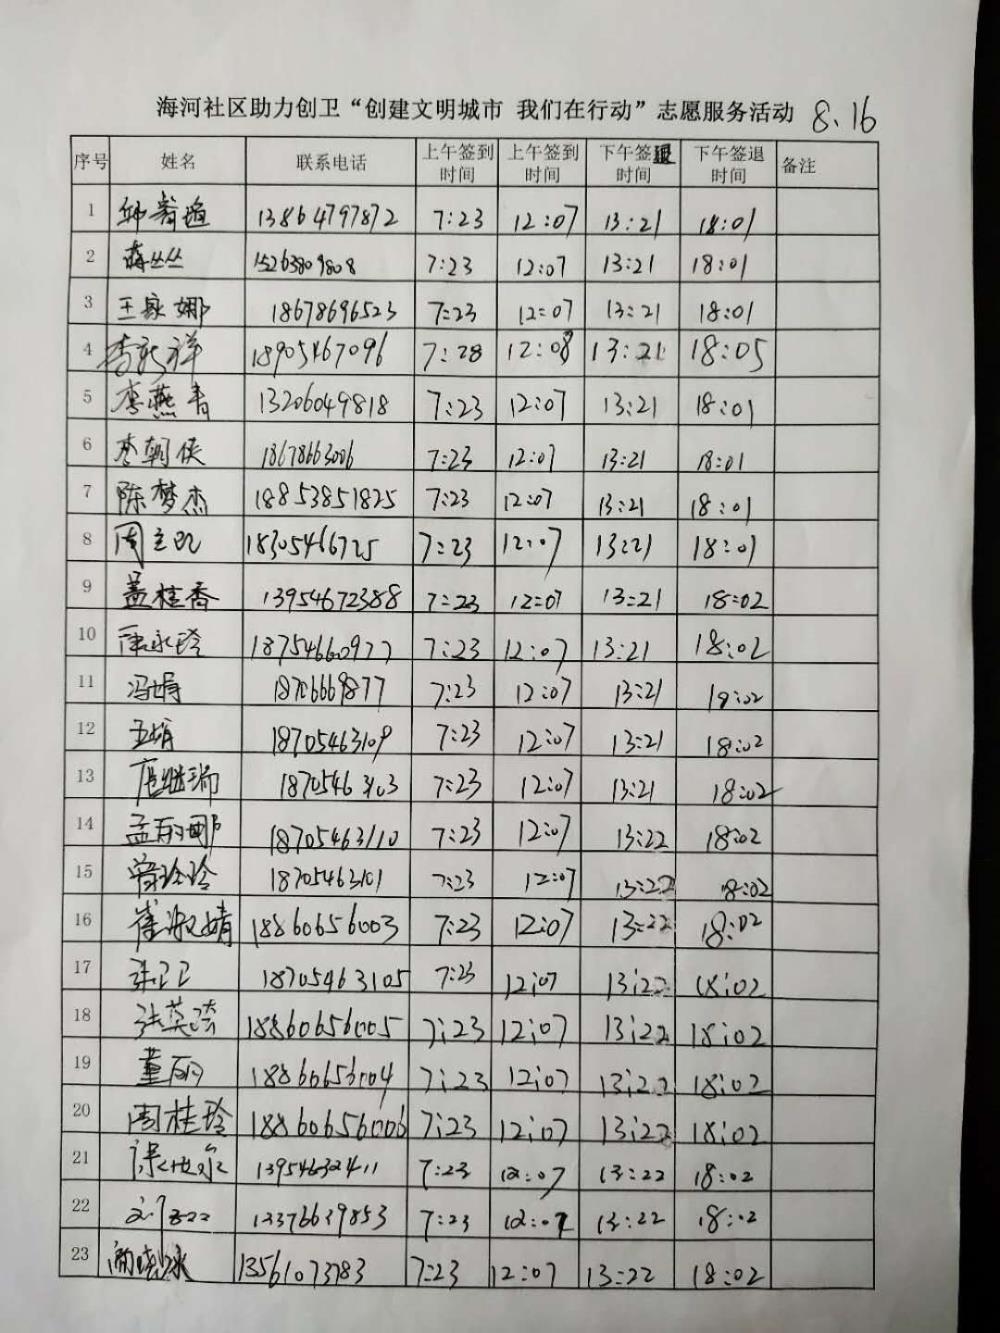 海河社区助力创卫“创建文明城市 我们在行动”志愿服务活动 8.16
序号 姓名 联系电话 上午签到时间 上午签到时间 下午签退时间 下午签退时间 备注
1 13864797872 7:23 12:07 13:21 18:01
2 丛丛 15263809808 7:23 12:07 13:21 18:01
3 王家娜 18678696523 7:23 12:07 13:21 18:01
4 李新祥 18905467096 7:28 12:08 13:21 18:05
5 李燕青 13206049818 7:23 12:07 13:21 18:01
6 李朝侠 18678663006 7:23 12:07 13:21 18:01
7 陈梦杰 18853851825 7:23 12:07 13:21 18:01
8 周立 18305466725 7:23 12:07 13:21 18:01
9 盖桂香 13954672388 7:23 12:07 13:21 18:02
10 永玲 18754660977 7:23 12:07 13:21 18:02
11 冯娟 18706669877 7:23 12:07 13:21 18:02
12 王娟 18705463109 7:23 12:07 13:21 18:02
13 继瑞 18705463103 7:23 12:07 13:21 18:02
14 孟丽娜 18705463110 7:23 12:07 13:22 18:02
15 曾玲玲 18705463101 7:23 12:07 13:22 18:02
16 崔淑婧 18860656003 7:23 12:07 13:22 18:02
17 18705463105 7:23 12:07 13:22 18:02
18 张英 18860656005 7:23 12:07 13:22 18:02
19 董丽 18860656004 7:23 12:07 13:22 18:02
20 周桂玲 18860656006 7:23 12:07 13:22 18:02
21 13954632411 7:23 12:07 13:22 18:02
22 13376639853 7:23 12:07 13:22 18:02
23 晓冰 13561073783 7:23 12:07 13:22 18:02